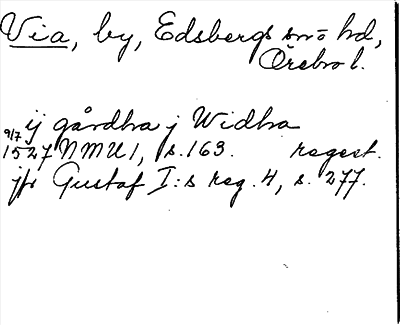 Via, by, Edsbergs sn o hd,
Örebro l.
ij gårdha j Widha
9/7 1527 NMU 1, s. 163. regest.
jfr Gustaf I:s reg. 4, s. 277.